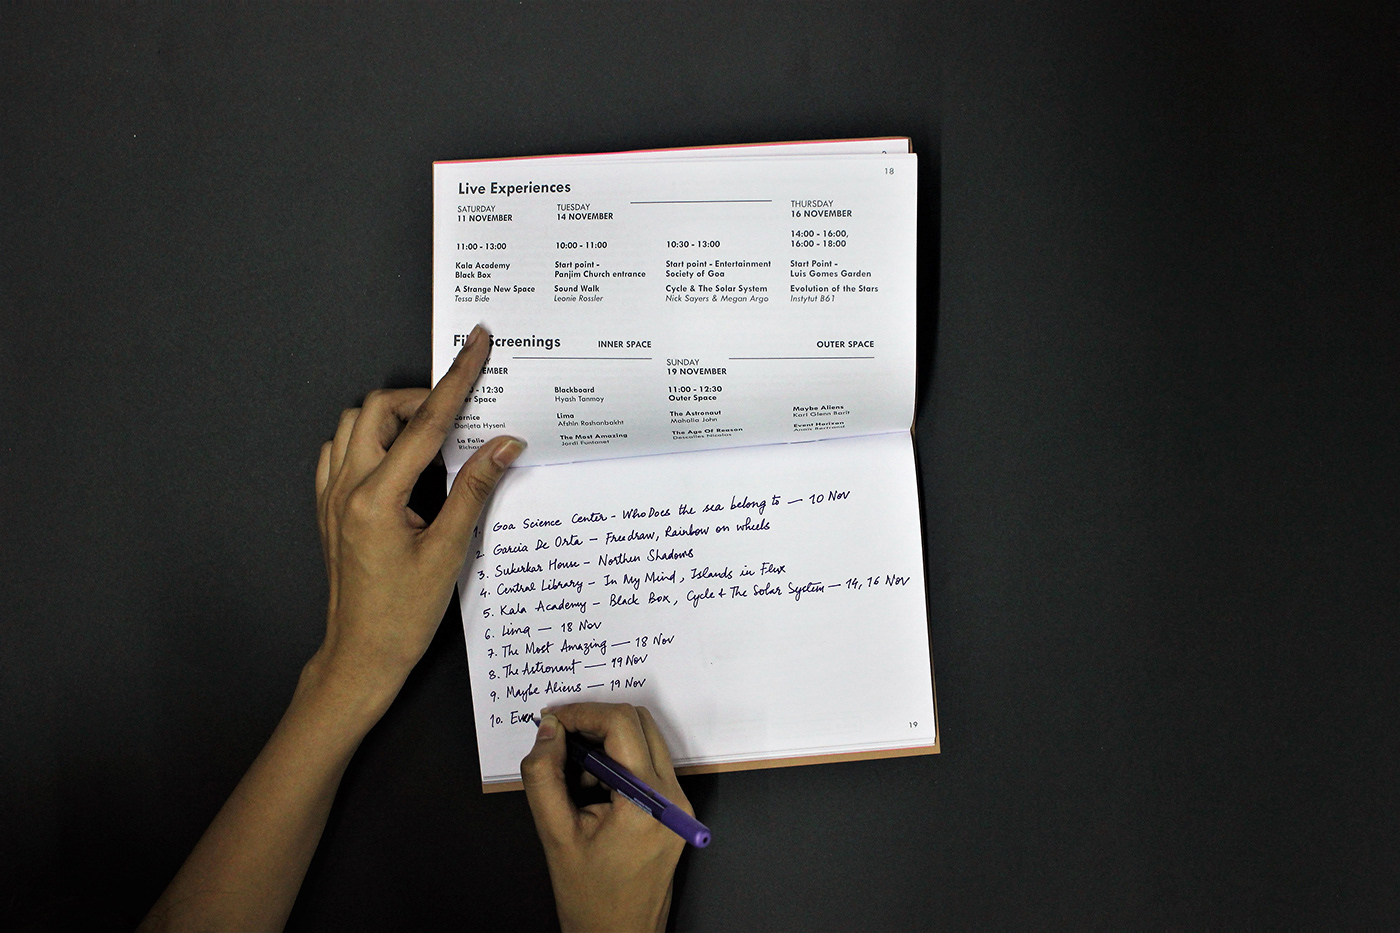 18
Live Experiences
SATURDAY
11 NOVEMBER
11:00 - 13:00
Kala Academy
Black Box
A Strange New Space
Tessa Bide
TUESDAY
14 NOVEMBER
10:00 - 11:00
Start point -
Panjim Church entrance
Sound Walk
Leonie Rossler
10:30 - 13:00
Start point - Entertainment
Society of Goa
Cycle & The Solar System
Nick Sayers & Megan Argo
THURSDAY
16 NOVEMBER
14:00 - 16:00,
16:00 - 18:00
Start Point -
Luis Gomes Garden
Evolution of the Stars
Instytut B61
Screenings
INNER SPACE
OUTER SPACE
- 12:30
Space
Donjeta Hyseni
La Folie
Blackboard
Hyash Tanmoy
Lima
Afshin Roshanbakht
The Most Amazing
Jordi Funtanet
SUNDAY
19 NOVEMBER
11:00 - 12:30
Outer Space
The Astronaut
Mahalia John
The Age Of Reason
Descalles Nicolas
Maybe Aliens
Karl Glenn Barit
Event Horizon
Anais Bertrand
1. Goa Science Center - Who Does the sea belong to — 10 Nov
2. Garcia De Orta — Freedraw, Rainbow on wheels
3. Sukerkar House — Northen Shadows
4. Central Library — In My Mind, Islands in Flux
5. Kala Academy — Black Box, Cycle & The Solar System — 14, 16 Nov
6. Lima — 18 Nov
7. The Most Amazing — 18 Nov
8. The Astronaut — 19 Nov
9. Maybe Aliens — 19 Nov
10. Even
19